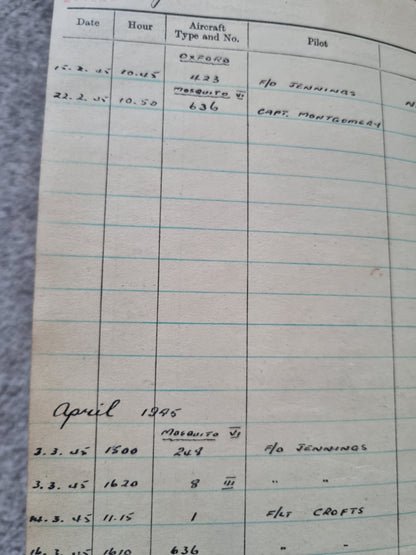 Date Hour Aircraft Type and No. Pilot
OXFORD
15.2.45 10.45 423 F/O JENNINGS
MOSQUITO VI
22.2.45 10.50 636 CAPT. MONTGOMERY N
April 1945
MOSQUITO VI
3.3.45 1500 248 F/O JENNINGS
3.3.45 1620 8 III " "
14.3.45 11.15 1 F/LT CROFTS
16.3.45 1610 636 " "